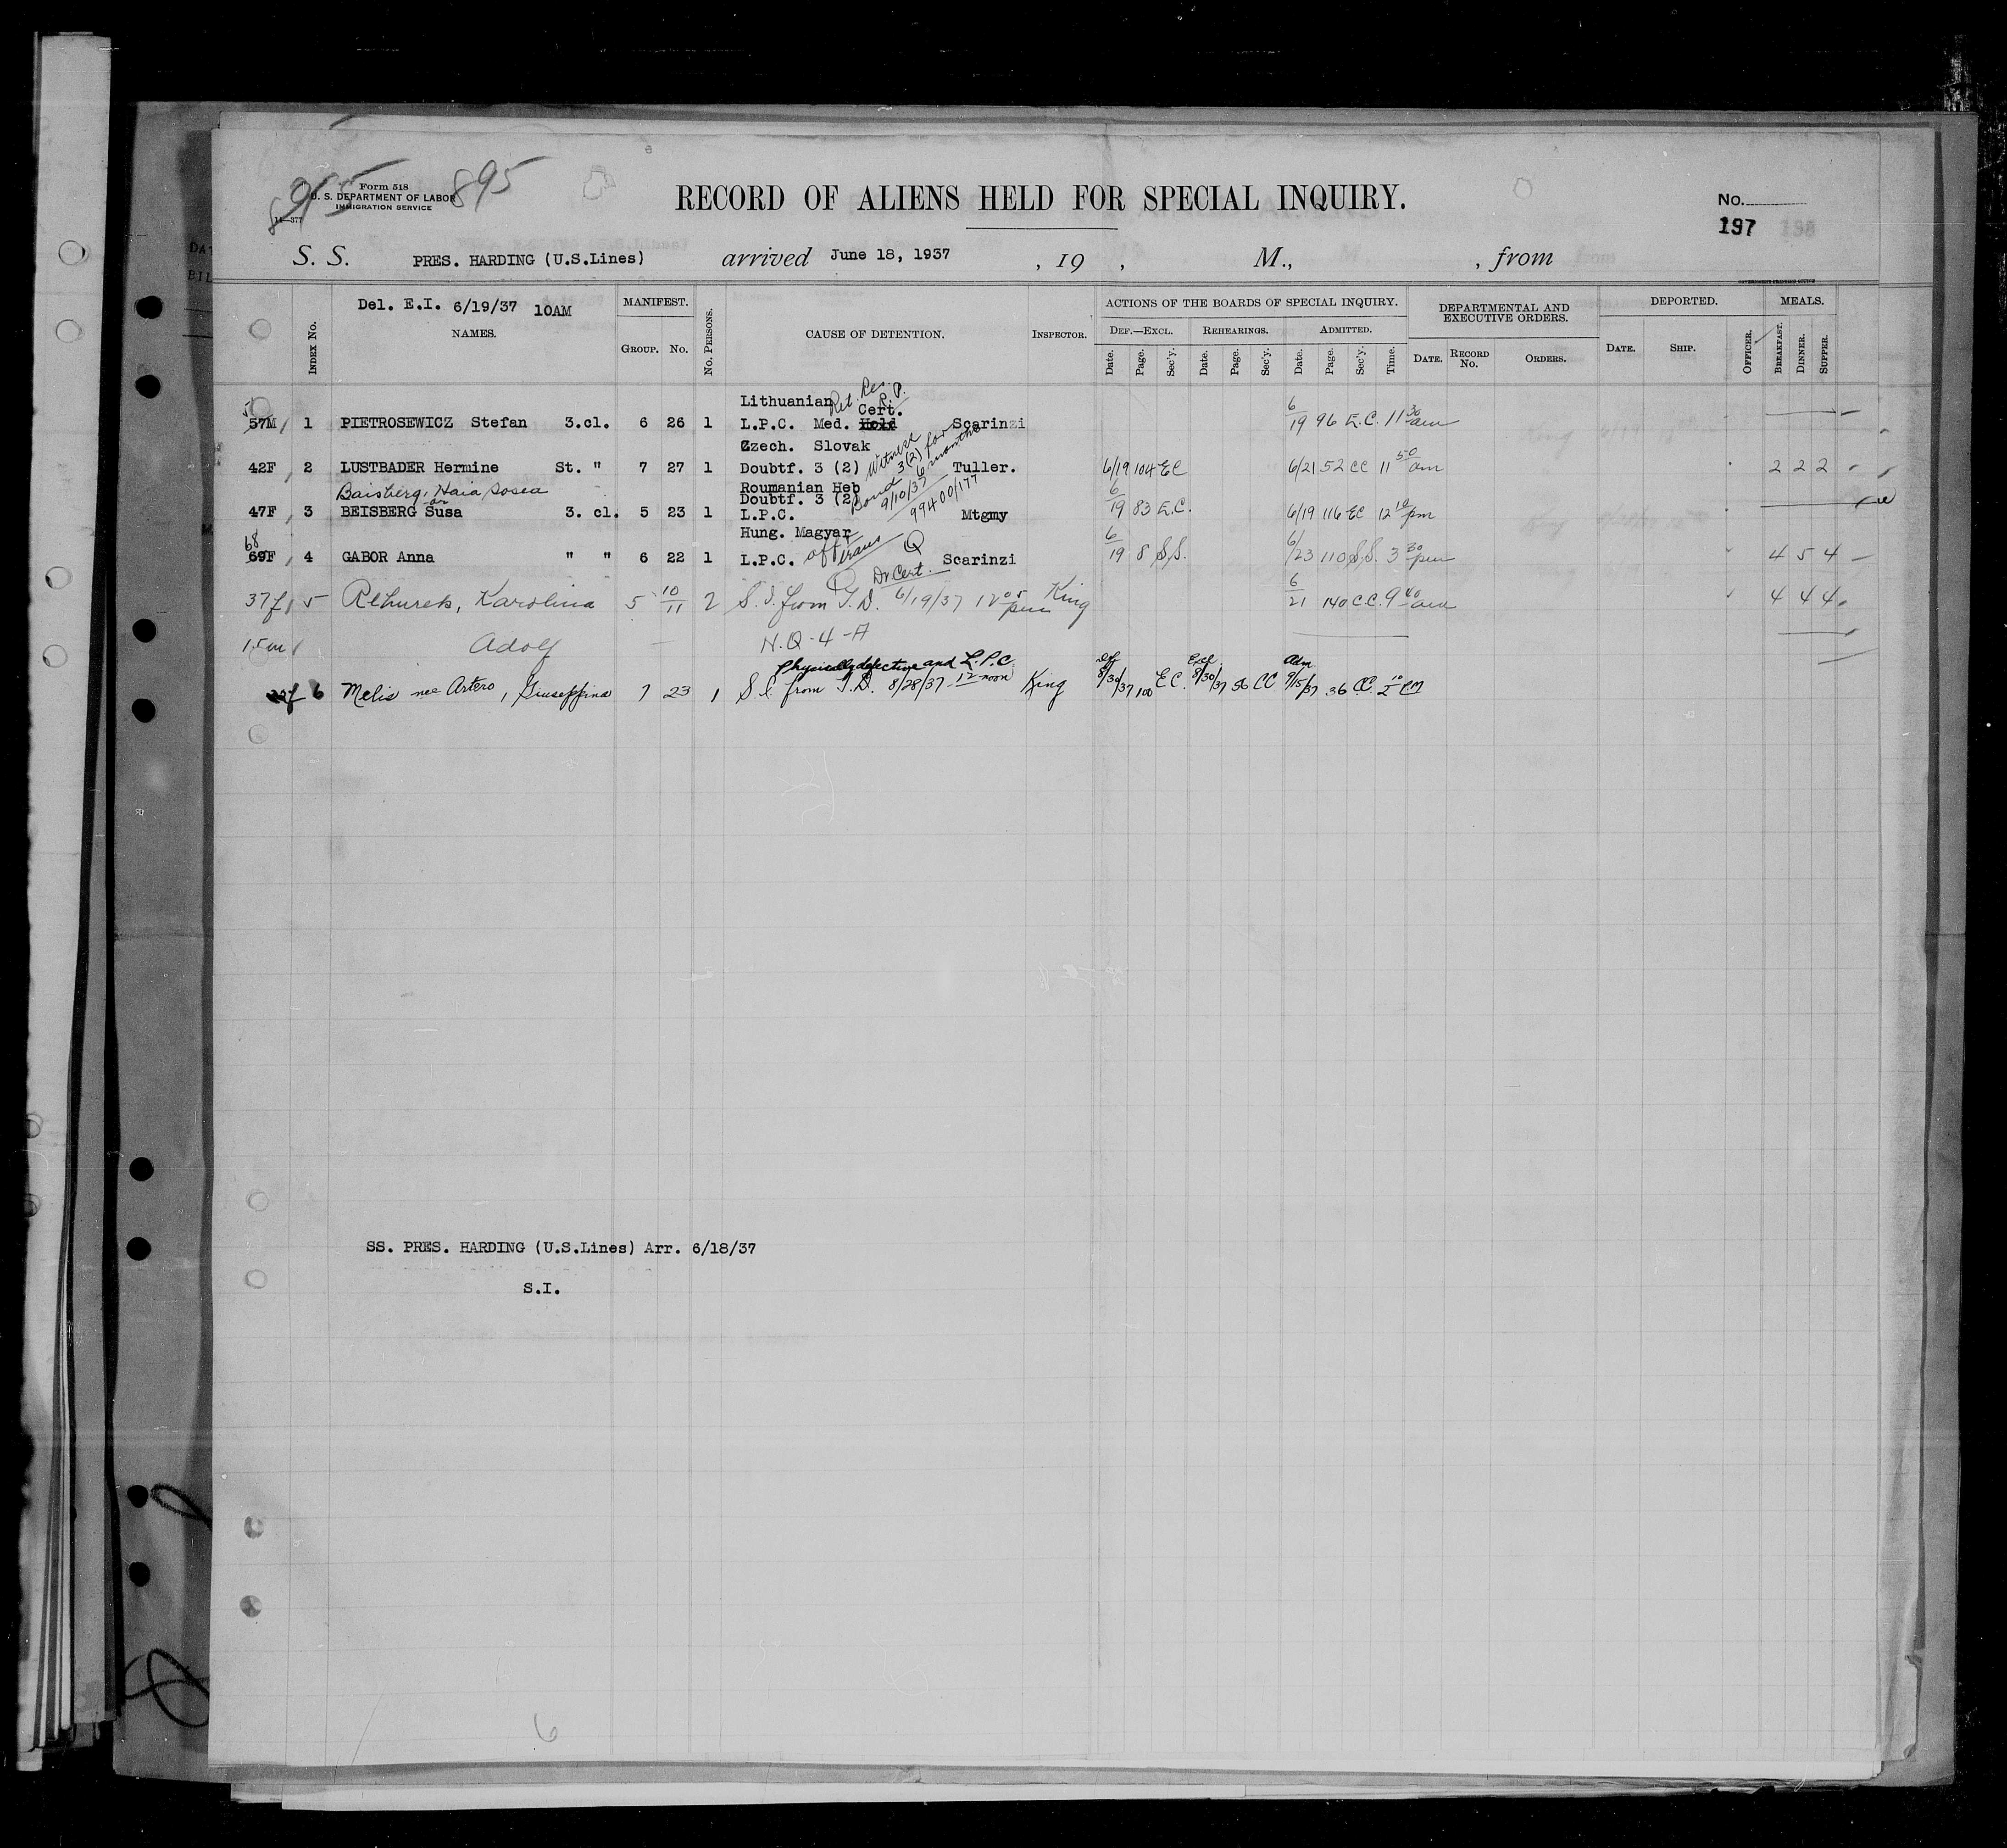 895
Form 518
U. S. DEPARTMENT OF LABOR
IMMIGRATION SERVICE
14—377
RECORD OF ALIENS HELD FOR SPECIAL INQUIRY.
No.
197
S. S. PRES. HARDING (U.S.Lines) arrived June 18, 1937 , 19 , M., , from
GOVERNMENT PRINTING OFFICE
Del. E.I. 6/19/37 10AM
INDEX No. NAMES. MANIFEST. GROUP. No. No. PERSONS. CAUSE OF DETENTION. INSPECTOR. ACTIONS OF THE BOARDS OF SPECIAL INQUIRY. DEPARTMENTAL AND EXECUTIVE ORDERS. DEPORTED. MEALS.
DEF.—EXCL. REHEARINGS. ADMITTED.
Date. Page. Sec'y. Date. Page. Sec'y. Date. Page. Sec'y. Time. DATE. RECORD No. ORDERS. DATE. SHIP. OFFICER. BREAKFAST. DINNER. SUPPER.
Lithuanian Ret. Res. R.P.
Cert.
57M 1 PIETROSEWICZ Stefan 3.cl. 6 26 1 L.P.C. Med. Hold Scarinzi 6/19 96 E.C. 11 30 am
Czech. Slovak
42F 2 LUSTBADER Hermine St. " 7 27 1 Doubtf. 3 (2) Witness Tuller. 6/19 104 EC 6/21 52 CC 11 50 am 2 2 2
Roumanian Heb
Baisberg, Haia Sosea or
Doubtf. 3 (2) Bond 3(2) for 6 months 9/10/37 99400/177
47F 3 BEISBERG Susa 3. cl. 5 23 1 L.P.C. Mtgmy 6/19 83 E.C. 6/19 116 EC 12 10 pm
Hung. Magyar
68
69F 4 GABOR Anna " " 6 22 1 L.P.C. Q Scarinzi 6/19 8 S.S. 6/23 110 S.S. 3 30 pm 4 5 4
Dr. Cert.
37f 5 Karolina 5 10/11 2 S.I. from T.D. 6/19/37 12 05 pm King 6/21 140 C.C. 9 40 am 4 4 4
15m Adolf H.Q-4-A
Physically defective and L.P.C.
6 Melis nee Artero, Giuseppina 7 23 1 S.I. from T.D. 8/28/37 12 noon King Def 8/30/37 100 EC. Excl. 8/30/37 56 CC Adm 9/15/37 36 CC. 2 10 PM
SS. PRES. HARDING (U.S.Lines) Arr. 6/18/37
S.I.
6